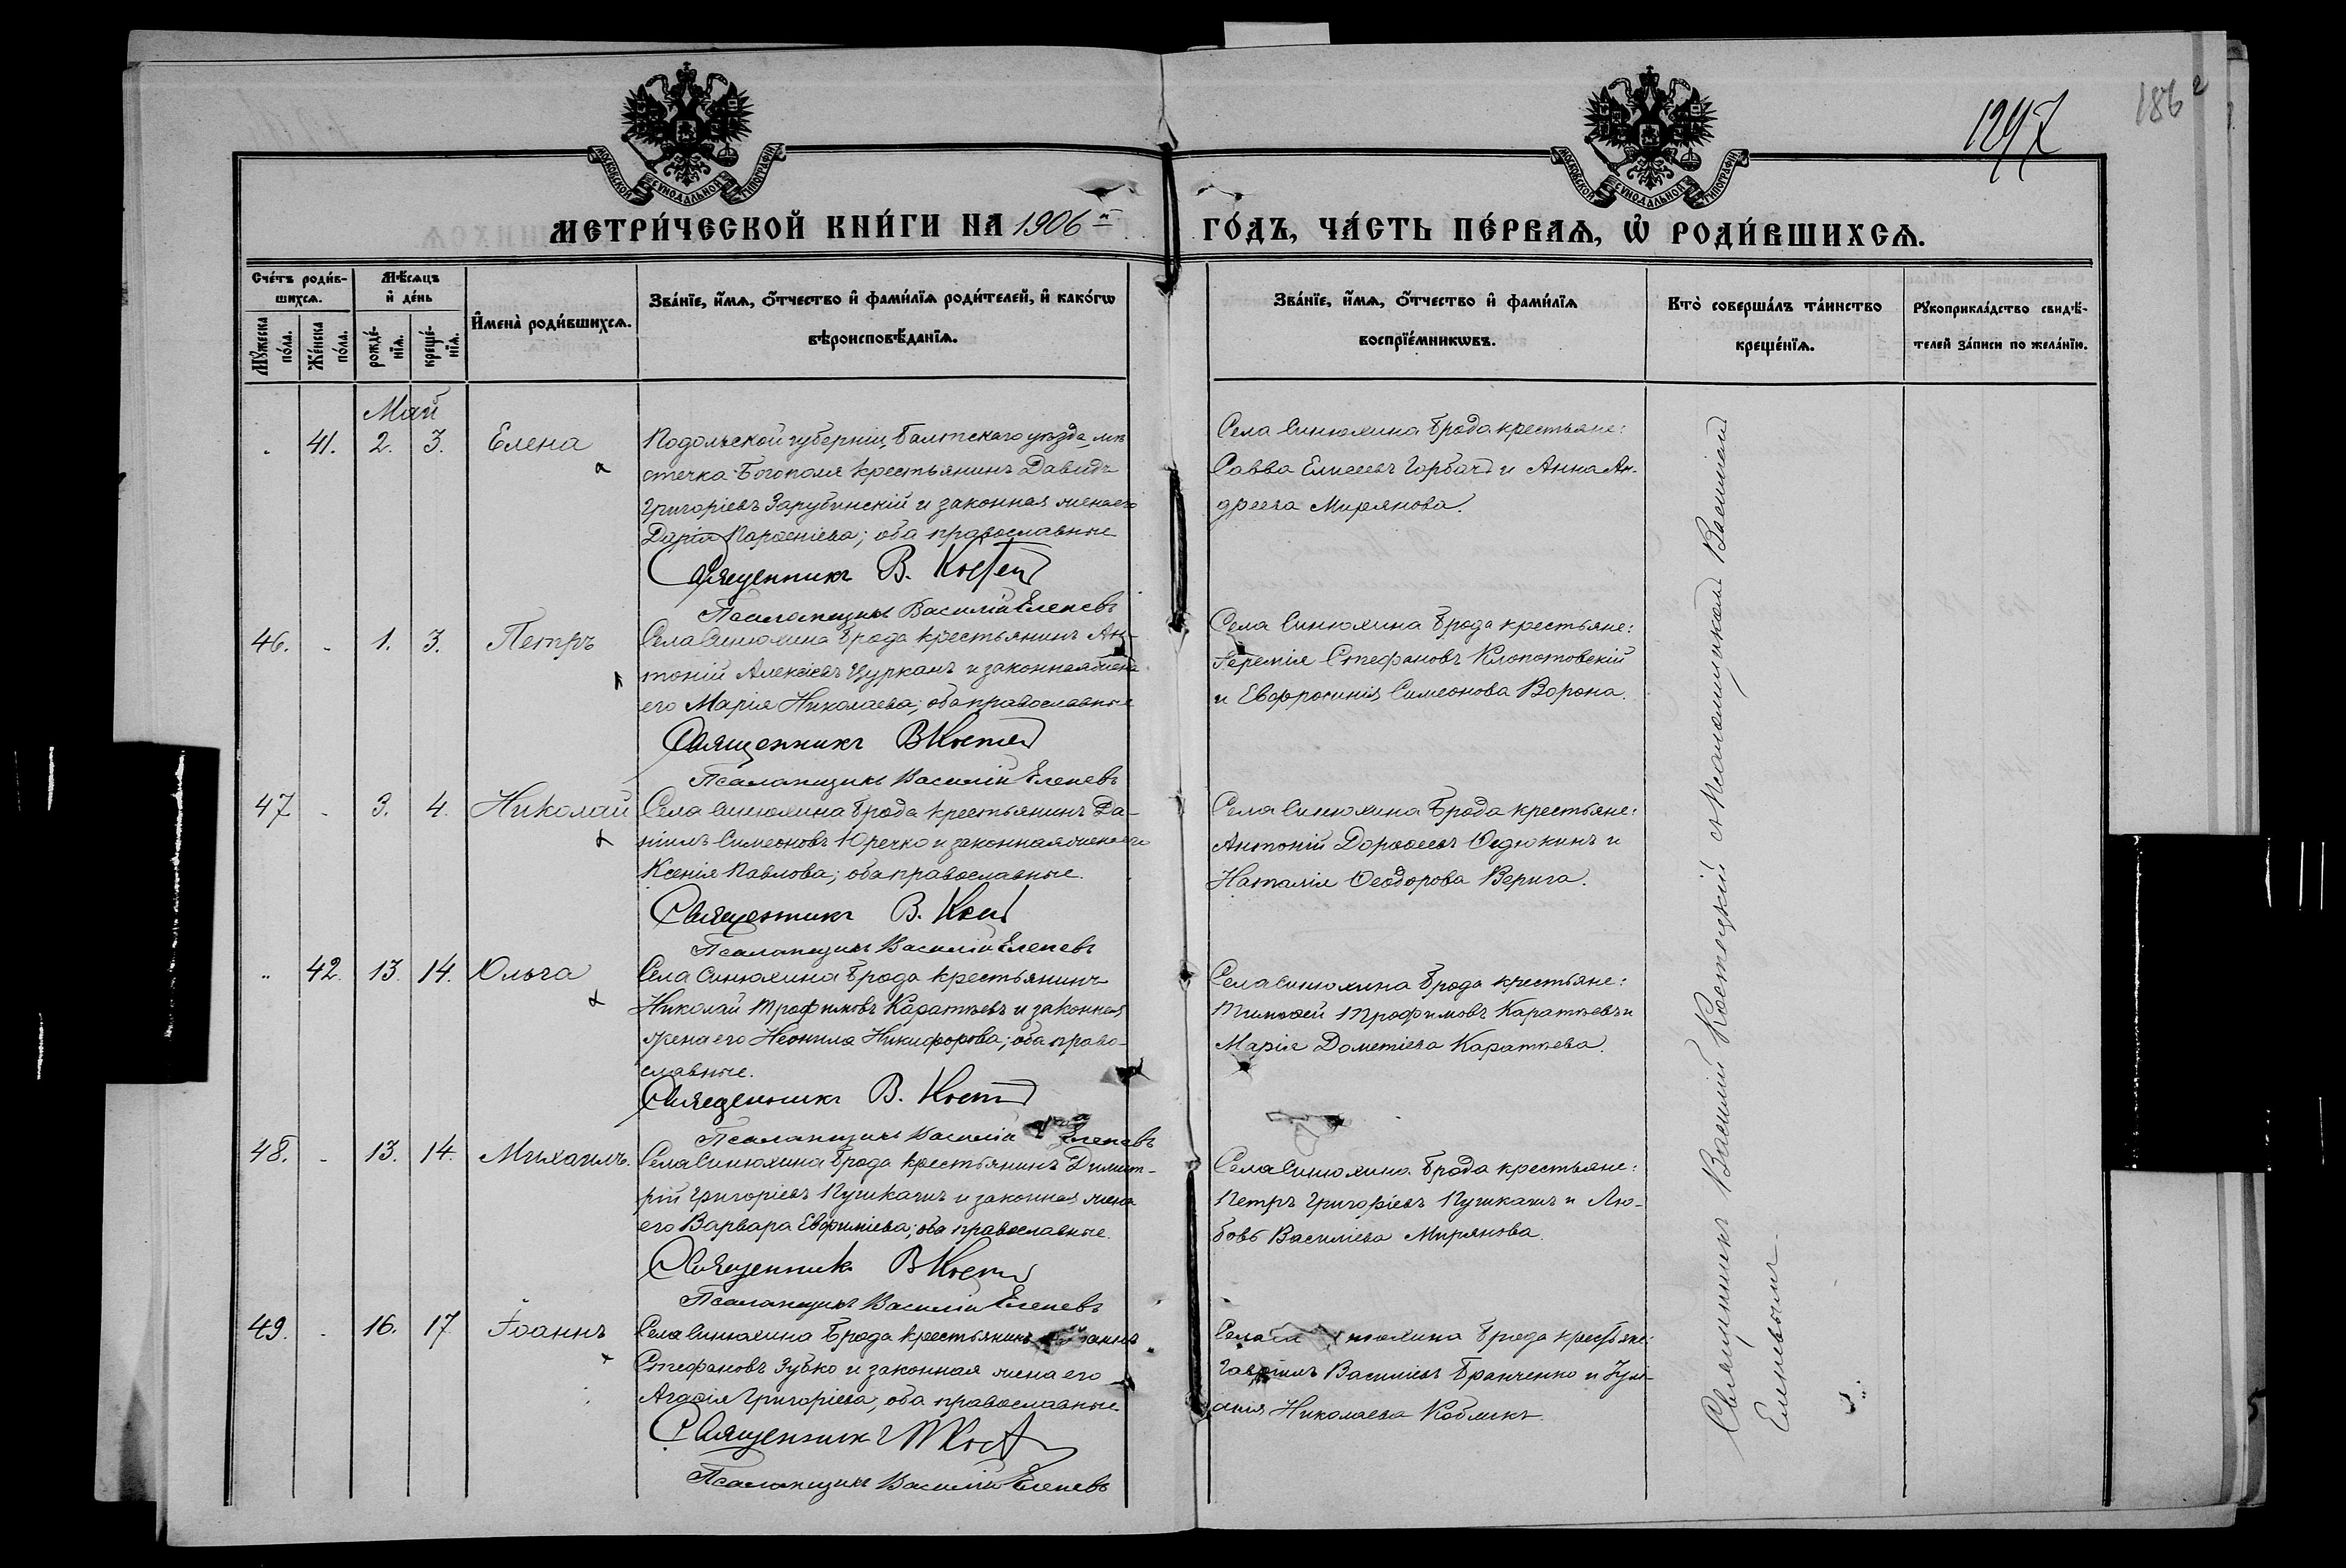 1297
186
МОСКОВСКОЙ СѴНОДАЛЬНОЙ ТИПОГРАФІИ
МОСКОВСКОЙ СѴНОДАЛЬНОЙ ТИПОГРАФІИ
МЕТРИ́ЧЕСКОЙ КНИ́ГИ НА 1906 й
ГО́ДЪ, ЧА́СТЬ ПЕ́РВАѦ, Ѡ҆ РОДИ́ВШИХСѦ.
Сче́тъ роди́в-
шихсѧ.
Мꙋ́жеска по́ла.
Же́нска по́ла.
Мѣ́сѧцъ
и҆ де́нь
рожде́-
нїѧ.
креще́-
нїѧ.
И҆мена̀ роди́вшихсѧ.
Зва́нїе, и҆́мѧ, ѻ҆́тчество и҆ фами́лїѧ роди́телей, и҆ како́гѡ
вѣроисповѣ́данїѧ.
Зва́нїе, и҆́мѧ, ѻ҆́тчество и҆ фами́лїѧ
воспрїе́мникѡвъ.
Кто̀ соверша́лъ та́инство
креще́нїѧ.
Рꙋкоприкла́дство свидѣ́-
телей за́писи по жела́нїю.
Май
41. 2. 3. Елена
Подольской губерніи, Балтскаго уѣзда, мѣ
стечка Богополя крестьянинъ Давидъ
Григоріевъ Зарубинскій и законная жена его
Дарія Парѳеніева; оба православные
Священникъ В. Костец
Псаломщикъ Василій Еленевъ
Села Синюхина Брода крестьяне:
Савва Елисеевъ Горбачъ и Анна Ан-
дреева Мирянова.
46. - 1. 3. Петръ
Села Синюхина Брода крестьянинъ Ан-
тоній Алексіевъ Цурканъ и законная жена
его Марія Николаева; оба православные
Священникъ В Костец
Псаломщикъ Василій Еленевъ
Села Синюхина Брода крестьяне:
Іеремія Стефановъ Клопотовскій
и Евфросинія Симеонова Ворона.
47 - 3. 4. Николай
Села Синюхина Брода крестьянинъ Да-
ніилъ Симеоновъ Юречко и законная жена его
Ксенія Павлова; оба православные.
Священникъ В. Кост
Псаломщикъ Василій Еленевъ
Села Синюхина Брода крестьяне:
Антоній Дороѳеевъ Ѳедюкинъ и
Наталія Ѳеодорова Верига.
42. 13. 14. Ольга
Села Синюхина Брода крестьянинъ
Николай Трофимовъ Каратѣевъ и законная
жена его Неонила Никифорова; оба право-
славные.
Священникъ В. Кост
Псаломщикъ Василій Еленевъ
Села Синюхина Брода крестьяне:
Тимоѳей Трофимовъ Каратѣевъ и
Марія Дометіева Каратѣева.
48. - 13. 14. Михаилъ.
Села Синюхина Брода крестьянинъ Димит-
рій Григоріевъ Пушкашъ и законная жена
его Варвара Евфиміева; оба православные.
Священник В Кост
Псаломщикъ Василій Еленевъ
Села Синюхина Брода крестьяне:
Петръ Григоріевъ Пушкашъ и Лю-
бовь Василіева Мирянова.
49. - 16. 17 Іоаннъ
Села Синюхина Брода крестьянинъ Іоаннъ
Стефановъ Зубко и законная жена его
Агаѳія Григоріева; оба православные
Священник Кост
Псаломщикъ Василій Еленевъ
Села Синюхина Брода крестьяне:
Гавріилъ Василіевъ Бранченко и Іулі-
анія Николаева Кобликъ.
Священникъ Василій Костецкій съ псаломщикомъ Василіемъ
Еленевымъ.